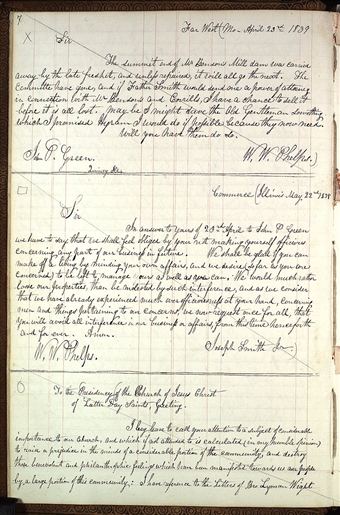 7
X
Far West, Mo. April 23rd 1839
Sir
The summit end of Mr Benson's Mill dam was carried
away by the late freshet, and unless repaired, it will all go the next. The
Committee have gone, and if Father Smith would send me a power of attorney
in connection with Mr Benson's and Corrill, I have a chance to sell it
before it is all lost. May be I might save the Old Gentleman something
which I promised Hyrum I would do if possible because they now need
Will you have them do so.
W. W. Phelps.
John P. Green.
Quincy Ills
Commerce, Illinois May 22nd 1839
Sir
In answer to yours of 23rd April to John P Green
we have to say that we shall feel obliged by your not making yourself officious
concerning any part of our business in future. We shall be glad if you can
make a living by minding your own affairs, and we desire (so far as you are
concerned) to be left to manage ours as well as we can. We would much rather
lose our properties, than be molested by such interference, and as we consider
that we have already experienced much over officiousness at your hand, concerning
men and things pertaining to our concerns, we now request once for all, that
you will avoid all interference in our business or affairs from this time henceforth
and for ever. Amen.
W. W. Phelps.
Joseph Smith Jr.
To the Presidency of the Church of Jesus Christ
of Latter Day Saints, Greeting.
I beg leave to call your attention to a subject of considerable
importance to our church, and which if not attended to is calculated (in my humble opinion)
to raise a prejudice in the minds of a considerable portion of the community, and destroy
those benevolent and philanthropic feelings which have been manifested towards us as a people
by a large portion of this community: I have reference to the Letters of Bro Lyman Wight